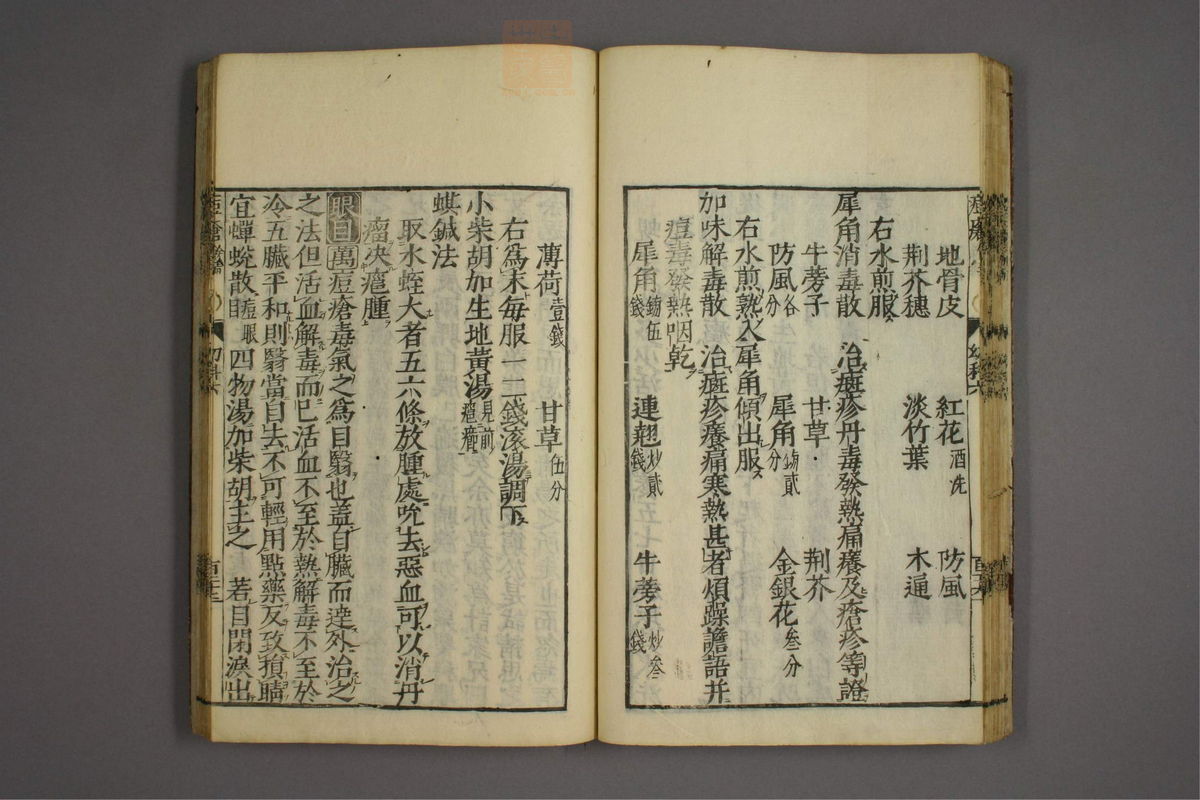 地骨皮 紅花酒洗 防風
荆芥穗 淡竹葉 木通
右水煎服
犀角消毒散 治癍疹丹毒發熱痛癢及瘡疹等證
牛蒡子 甘草 荆芥
防風各分 犀角鎊貳分 金銀花叁分
右水煎熟入犀角傾出服
加味解毒散 治癍疹癢痛寒熱甚者煩躁譫語并
痘毒發熱咽乾
犀角鎊伍錢 連翹炒貳錢 牛蒡子炒叁錢
薄荷壹錢 甘草伍分
右爲末每服一二錢滚湯調下
小柴胡加生地黄湯見前
蜞鍼法
取水蛭大者五六條放腫處吮去惡血可以消丹
瘤决癰腫
眼目萬痘瘡毒氣之爲目翳也蓋自臟而達外治之
之法但活血解毒而已活血不至於熱解毒不至於
冷五臟平和則翳當自去不可輕用點藥反致損睛
宜蟬蛻散痘眼目四物湯加柴胡主之 若目閉淚出
幼科六